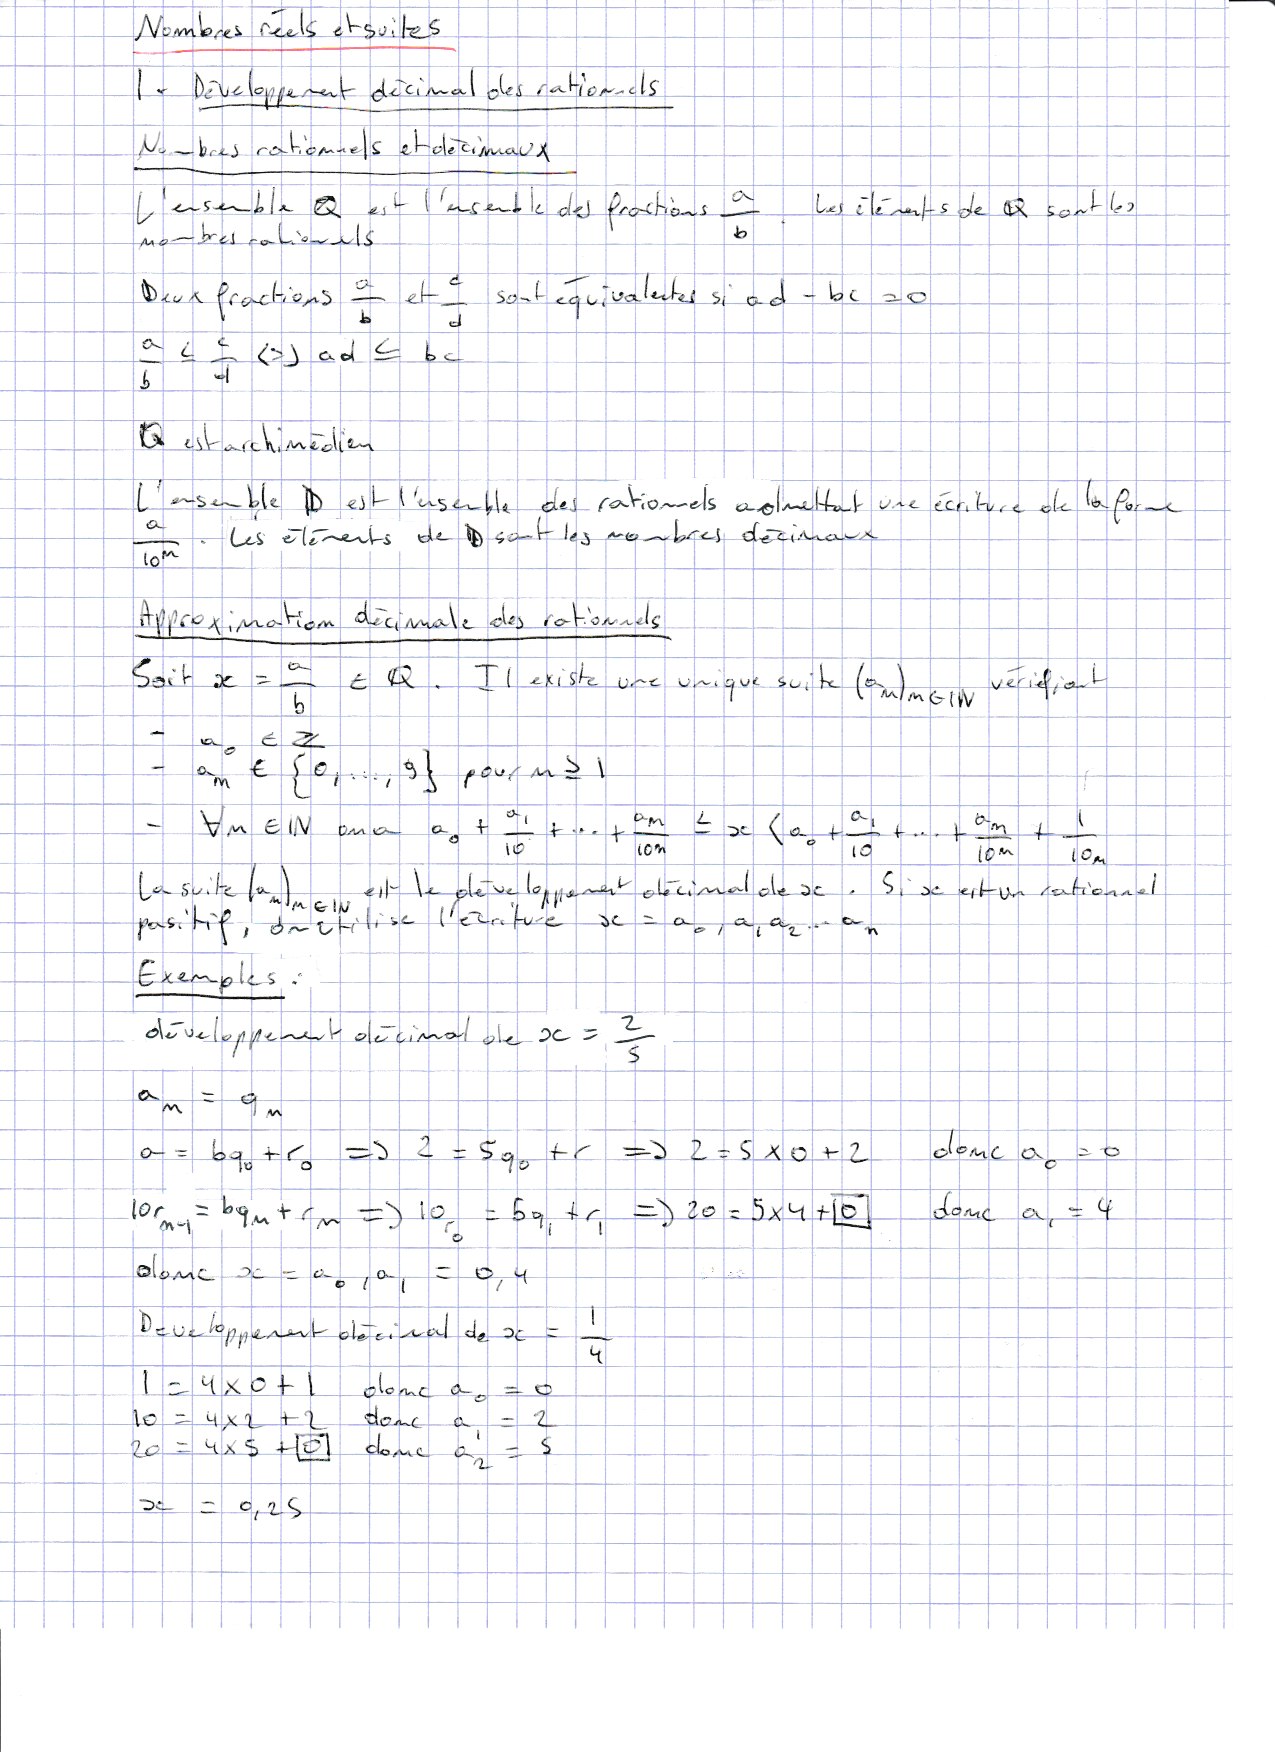 Nombres réels et suites
1. Développement décimal des rationnels
Nombres rationnels et décimaux
L'ensemble ℚ est l'ensemble des fractions a/b. Les éléments de ℚ sont les
nombres rationnels
Deux fractions a/b et c/d sont équivalentes si ad - bc = 0
a/b ≤ c/d <=> ad ≤ bc
ℚ est archimédien
L'ensemble 𝔻 est l'ensemble des rationnels admettant une écriture de la forme
a/10^n. Les éléments de 𝔻 sont les nombres décimaux
Approximation décimale des rationnels
Soit x = a/b ∈ ℚ. Il existe une unique suite (a_n)_{n∈ℕ} vérifiant
- a_0 ∈ ℤ
- a_n ∈ {0,...,9} pour n ≥ 1
- ∀n ∈ ℕ on a a_0 + a_1/10 + ... + a_n/10^n ≤ x < a_0 + a_1/10 + ... + a_n/10^n + 1/10^n
La suite (a_n)_{n∈ℕ} est le développement décimal de x. Si x est un rationnel
positif, on utilise l'écriture x = a_0, a_1 a_2 ... a_n
Exemples :
développement décimal de x = 2/5
a_n = q_n
a = bq_0 + r_0 => 2 = 5q_0 + r => 2 = 5 × 0 + 2 donc a_0 = 0
10r_{n-1} = bq_n + r_n => 10r_0 = 5q_1 + r_1 => 20 = 5×4 + 0 donc a_1 = 4
donc x = a_0, a_1 = 0,4
Développement décimal de x = 1/4
1 = 4×0 + 1 donc a_0 = 0
10 = 4×2 + 2 donc a_1 = 2
20 = 4×5 + 0 donc a_2 = 5
x = 0,25